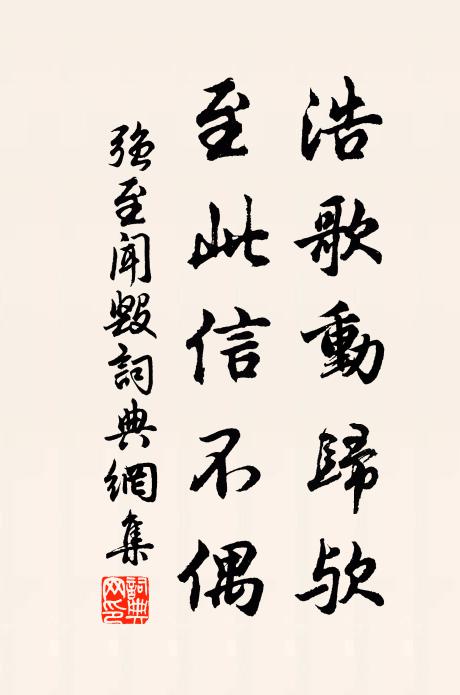 浩歌動歸欤
至此信不偶
強至聞毀詞典網集
詞典網印